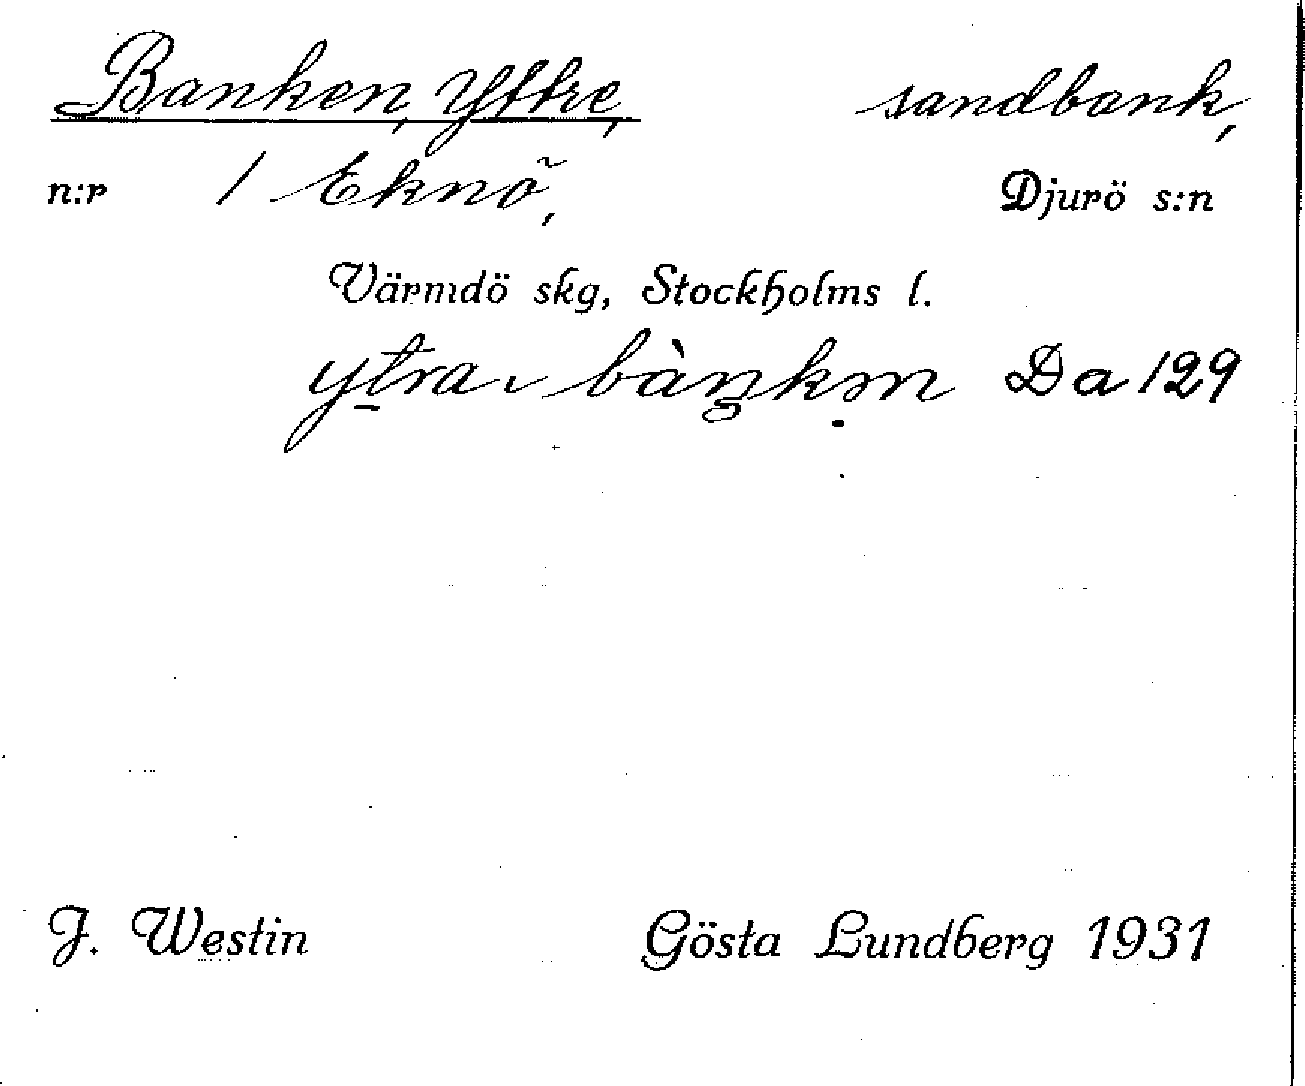 Banken, Yttre, sandbank,
n:r 1 Eknö, Djurö s:n
Värmdö skg, Stockholms l.
Da 129
J. Westin Gösta Lundberg 1931